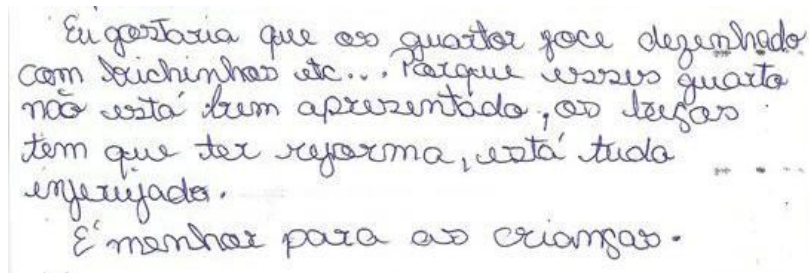 Eu gostaria que os quartos foce dezenhado
com bichinhos etc... Porque esses quarto
não está bem aprezentado, os
tem que ter reforma, está tudo
enferujado.
É menhor para as crianças.